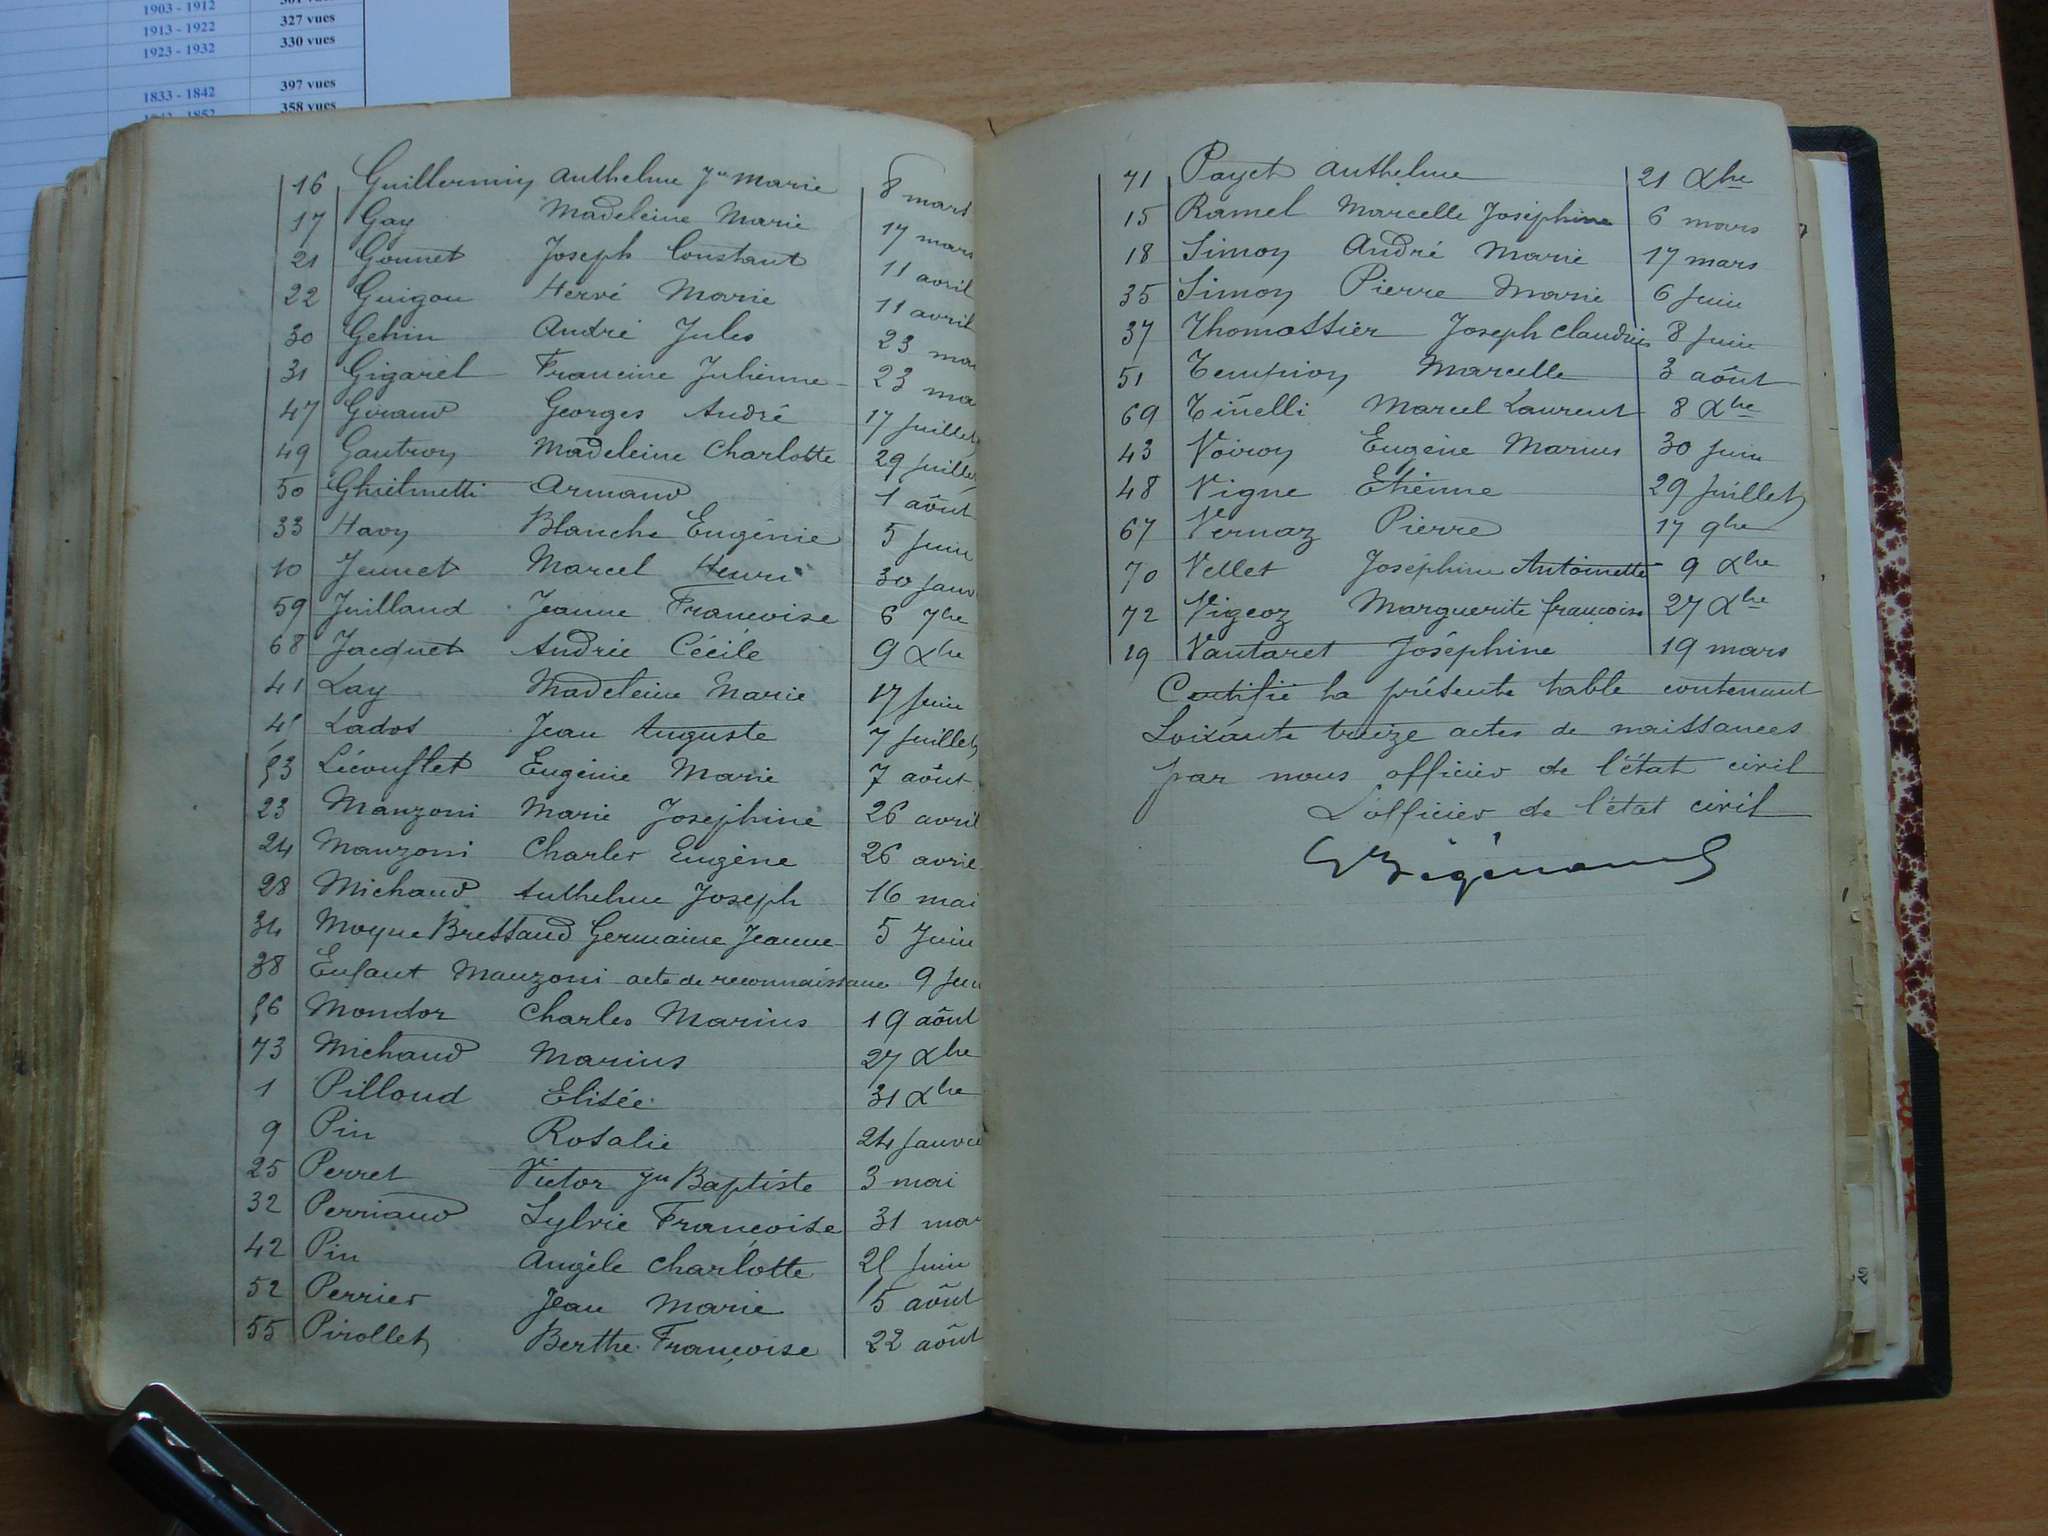 1903 - 1912
1913 - 1922 327 vues
1923 - 1932 330 vues
1833 - 1842 397 vues
358 vues
16 Guillermin Anthelme Jn Marie 8 mars
17 Gay Madeleine Marie 17 mars
21 Gonnet Joseph Constant 11 avril
22 Guigou Hervé Marie 11 avril
30 Gehin André Jules 23 mai
31 Gigarel Francine Julienne 23 mai
47 Giraud Georges André 17 Juillet
49 Gautron Madeleine Charlotte 29 Juillet
50 Ghielmetti Armand 1 août
33 Havy Blanche Eugénie 5 Juin
10 Jeunet Marcel Henri 30 Janv
59 Juilland Jeanne Françoise 6 7bre
68 Jacquet Andrée Cécile 9 Xbre
41 Lay Madeleine Marie 17 Juin
45 Lados Jean Auguste 7 Juillet
53 Lécouflet Eugénie Marie 7 août
23 Manzoni Marie Joséphine 26 avril
24 Manzoni Charles Eugène 26 avril
28 Michaud Anthelme Joseph 16 mai
34 Moyne Bressand Germaine Jeanne 5 Juin
38 Enfant Manzoni acte de reconnaissance 9 Juin
56 Mondor Charles Marius 19 août
73 Michaud Marius 27 Xbre
1 Pilloud Elisée 31 Xbre
9 Pin Rosalie 24 Janvie
25 Perret Victor Jn Baptiste 3 mai
32 Perriaud Sylvie Françoise 31 mai
42 Pin Angèle Charlotte 25 Juin
52 Perrier Jean Marie 5 août
55 Pirollet Berthe Françoise 22 août
71 Payet Anthelme 21 Xbre
15 Ramel Marcelle Joséphine 6 mars
18 Simon André Marie 17 mars
35 Simon Pierre Marie 6 Juin
37 Thomassier Joseph Claudius 8 Juin
51 Tempion Marcelle 3 août
69 Tinelli Marcel Laurent 8 Xbre
43 Voiron Eugène Marius 30 Juin
48 Vigne Etienne 29 Juillet
67 Vernaz Pierre 17 9bre
70 Vellet Joséphine Antoinette 9 Xbre
72 Vigeoz Marguerite françoise 27 Xbre
19 Vautaret Joséphine 19 mars
Certifié la présente table contenant
Soixante treize actes de naissances
par nous officier de l'état civil
L'officier de l'état civil